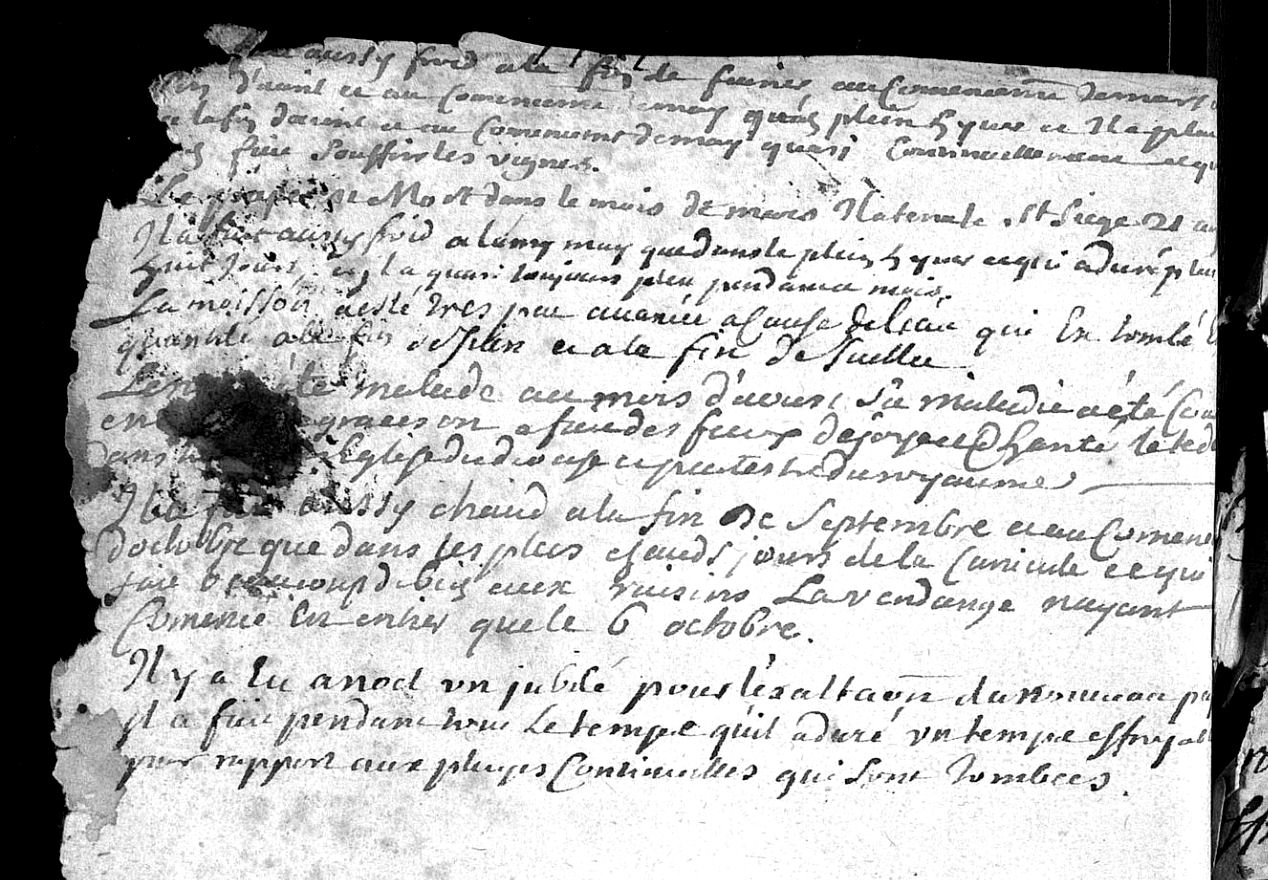 aussy froid a la fin de fevrier au Comencemt de mars
d'avril et au Comencemt de may qu'en plein hyver et Il a plu
a la fin d'avril et au Comencemt de may quasi Continuellement ce qu
fait souffrir les vignes.
Le pape est Mort dans le mois de mars St Siege 21 an
Il a fait aussy froid a la my may que dans le plein hyver ce qui a duré plus
huit Jours, et Il a quasi toujours plu pendant ce mois.
La moisson a esté tres peu avancée a Cause de l'eau qui En tombé
quantité a la fin de Juin et a la fin de Juillet.
Le malade au mois d'aoust, Sa maladie a été
en graces on a fait des feux de joye et Chanté le te d
dans Eglise du diocese et par tout le du royaume
Il a fait aussy chaud a la fin de Septembre et au Comence
d'octobre que dans les plus chauds jours de la Canicule ce qui
fait beaucoup de bien aux raisins La vendange n'ayant
Comencé En entier que le 6 octobre.
Il y a Eu a noel un jubilé pour l'exaltaõn du nouveau pa
Il a fait pendant tout le temps qu'il a duré un temps effroyab
par rapport aux pluyes Continuelles qui sont tombées.